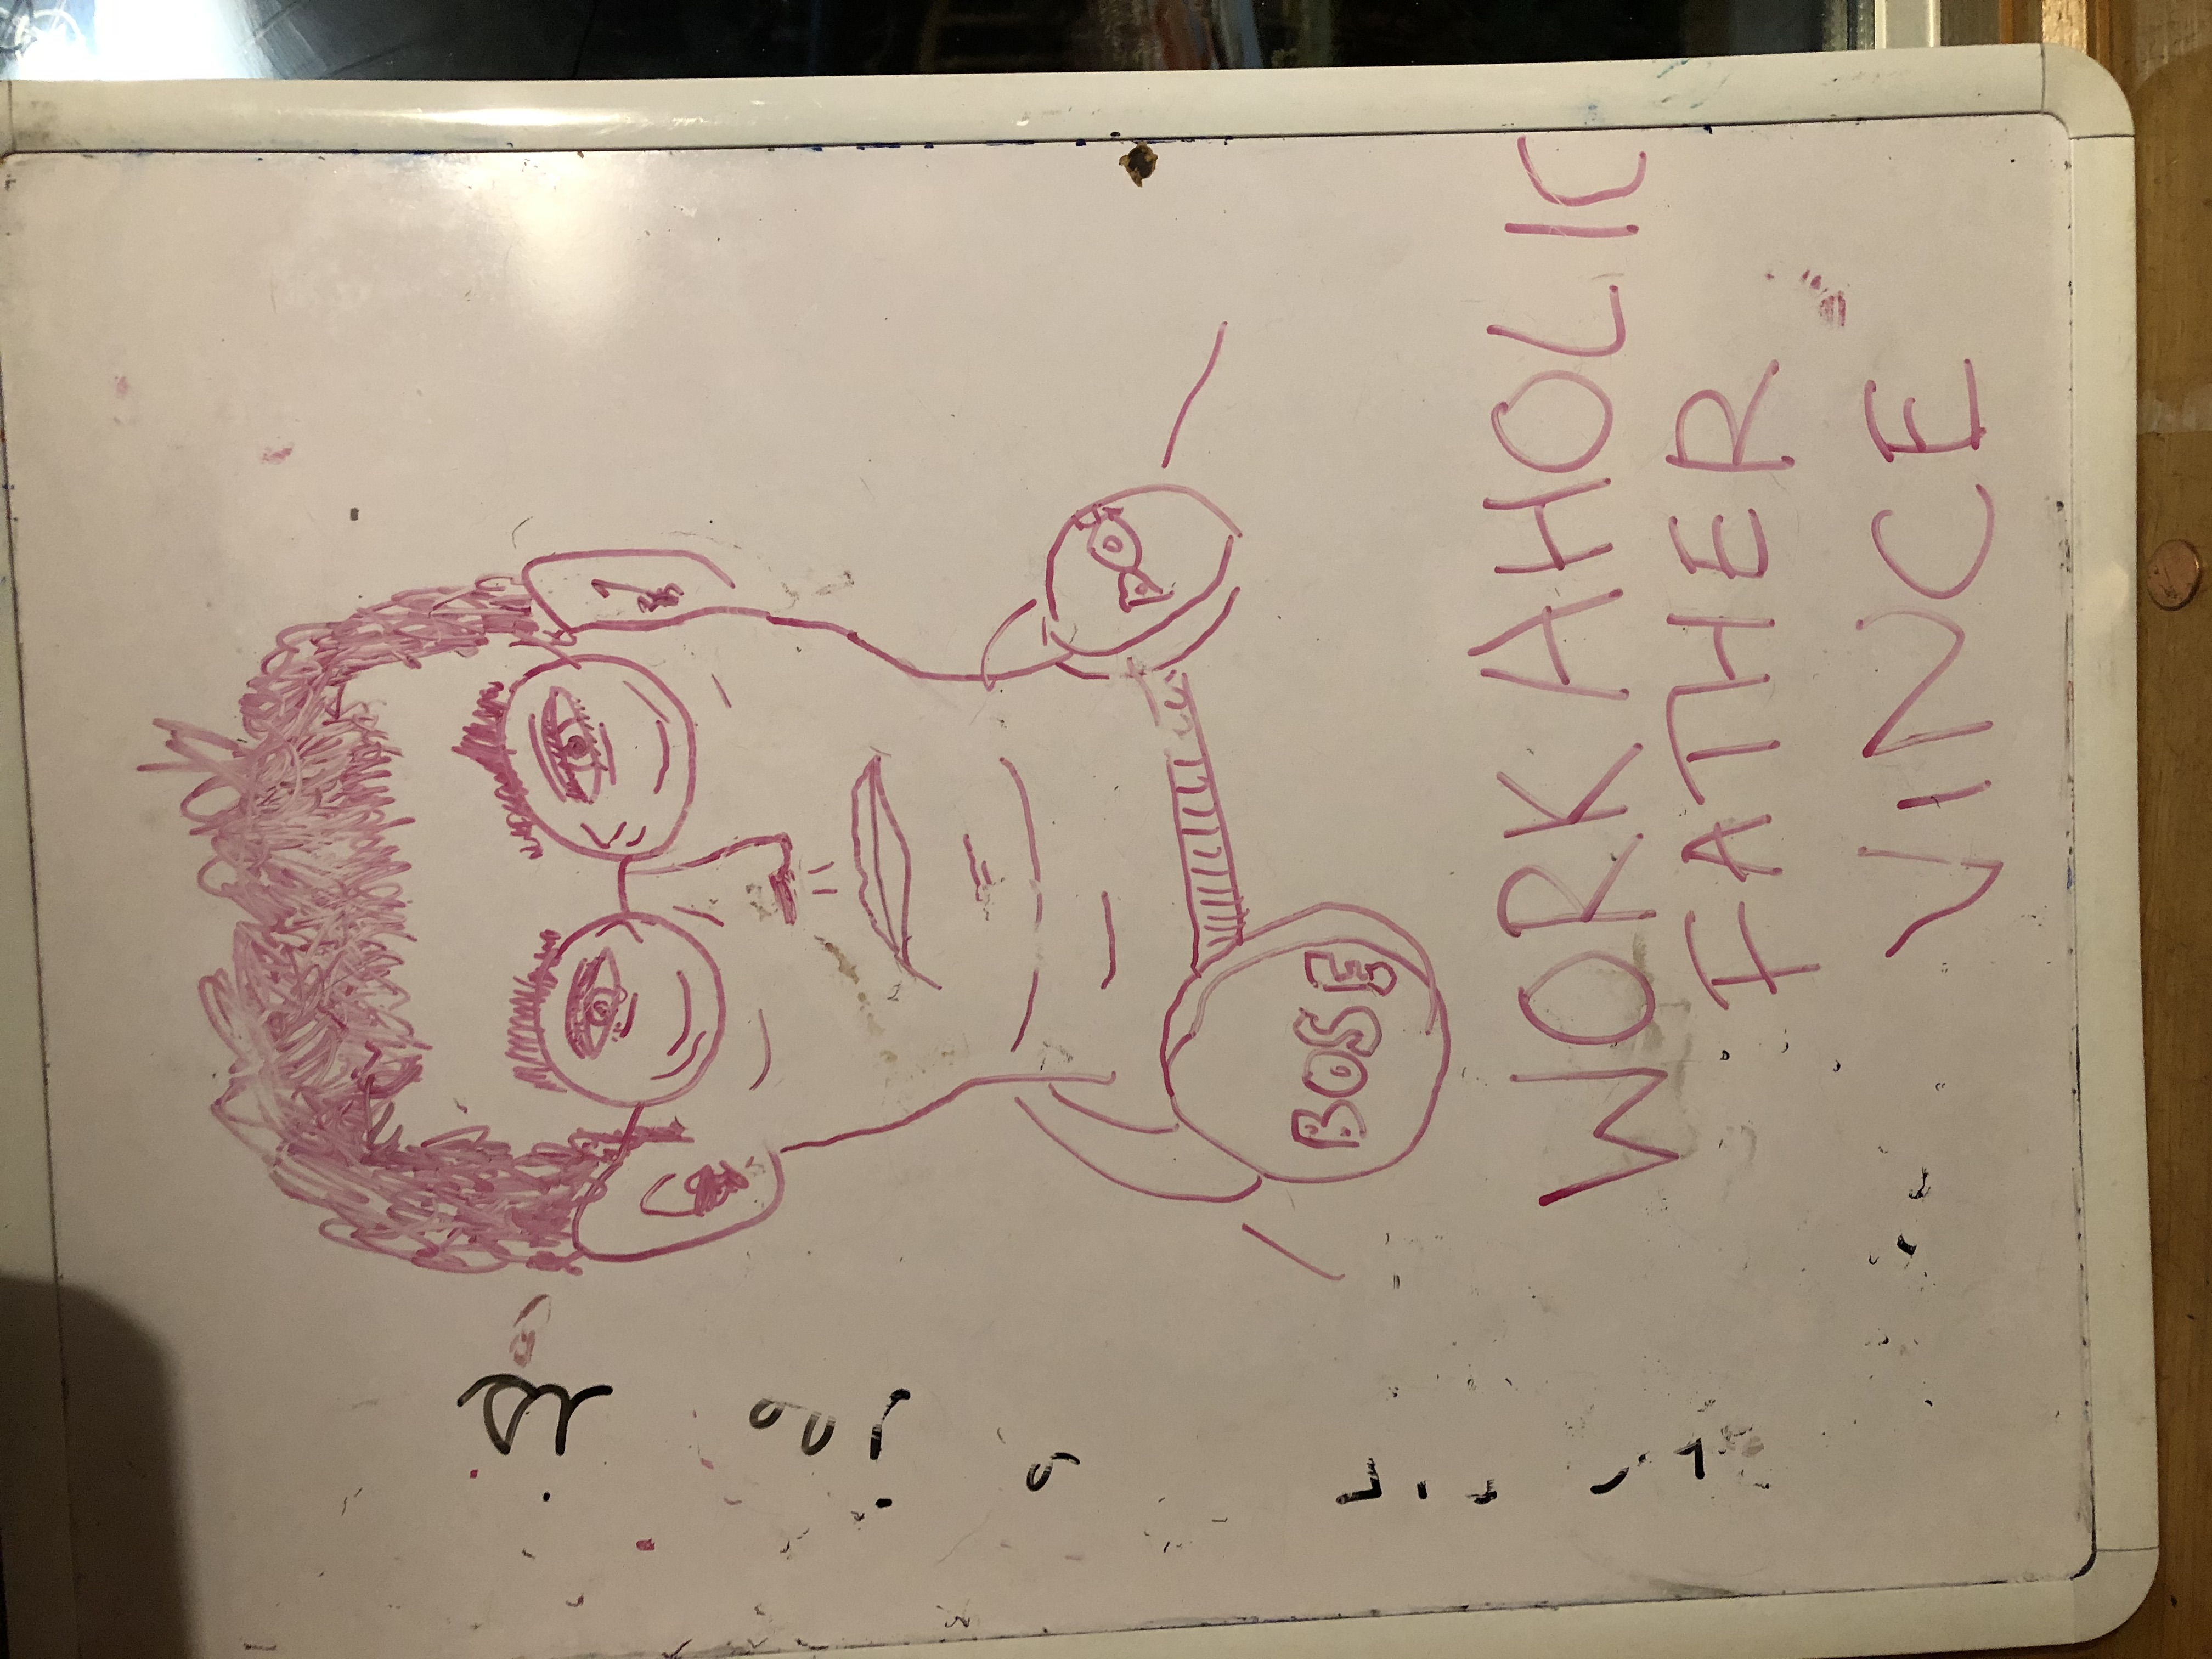 BOSE
WORKAHOLIC
FATHER
VINCE